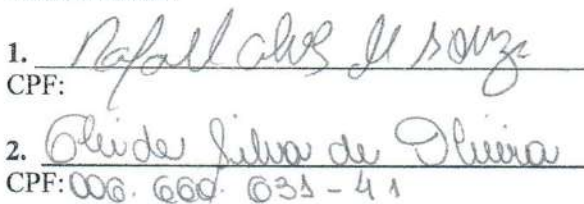 1. Rafael Alves de Souza
CPF:
2. Cleide Silva de Oliveira
CPF: 006.660.631-41